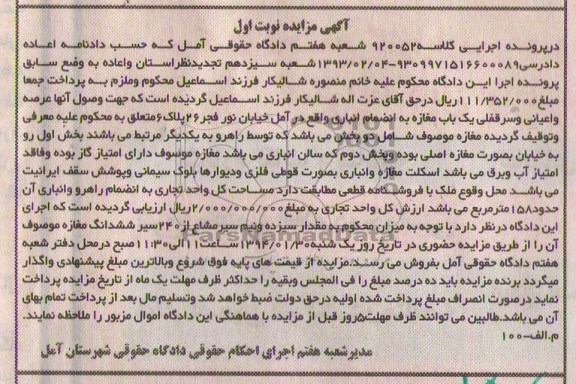 آگهی مزایده نوبت اول
درپرونده اجرایی کلاسه ۹۲۰۰۵۲ شعبه هفتم دادگاه حقوقی آمل که حسب دادنامه اعاده
دادرسی ۹۳۰۹۹۷۱۵۱۶۶۰۰۰۸۹-۱۳۹۳/۰۲/۰۴ شعبه سیزدهم تجدیدنظراستان واعاده به وضع سابق
پرونده اجرا این دادگاه محکوم علیه خانم منصوره شالیکار فرزند اسماعیل محکوم وملزم به پرداخت جمعا
مبلغ ۱۱۱/۳۵۲/۰۰۰ ریال درحق آقای عزت اله شالیکار فرزند اسماعیل گردیده است که جهت وصول آنها عرصه
واعیانی وسرقفلی یک باب مغازه به انضمام انباری واقع در آمل خیابان نور فجر ۲۶ پلاک ۶ متعلق به محکوم علیه معرفی
وتوقیف گردیده مغازه موصوف شامل دو بخش می باشد که توسط راهرو به یکدیگر مرتبط می باشند بخش اول رو
به خیابان بصورت مغازه اصلی بوده وبخش دوم که سالن انباری می باشد مغازه موصوف دارای امتیاز گاز بوده وفاقد
امتیاز آب وبرق می باشد اسکلت مغازه وانباری بصورت قوطی فلزی ودیوارها بلوک سیمانی وپوشش سقف ایرانیت
می باشد محل وقوع ملک با فروشنامه قطعی مطابقت دارد مساحت کل واحد تجاری به انضمام راهرو وانباری آن
حدود ۱۵۸ مترمربع می باشد ارزش کل واحد تجاری به مبلغ ۲/۰۰۰/۰۰۰/۰۰۰ ریال ارزیابی گردیده است که اجرای
این دادگاه درنظر دارد با توجه به میزان محکوم به مقدار سیزده ونیم سیر مشاع از ۲۴۰ سیر ششدانگ مغازه موصوف
آن را از طریق مزایده حضوری در تاریخ روز یک شنبه ۱۳۹۴/۰۱/۳۰ ساعت ۱۱ الی ۱۱:۳۰ صبح درمحل دفتر شعبه
هفتم دادگاه حقوقی آمل بفروش می رسد. مزایده از قیمت های پایه فوق شروع وبالاترین مبلغ پیشنهادی واگذار
میگردد برنده مزایده باید ده درصد مبلغ را فی المجلس وبقیه را حداکثر ظرف مهلت یک ماه از تاریخ مزایده پرداخت
نماید درصورت انصراف مبلغ پرداخت شده اولیه درحق دولت ضبط خواهد شد وتسلیم مال بعد از پرداخت تمام بهای
آن می باشد. طالبین می توانند ظرف مهلت ۵ روز قبل از مزایده با هماهنگی این دادگاه اموال مزبور را ملاحظه نمایند.
م.الف-۱۰۰
مدیرشعبه هفتم اجرای احکام حقوقی دادگاه حقوقی شهرستان آمل